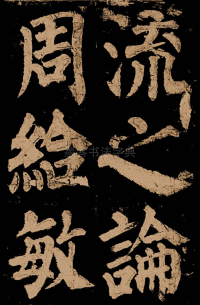 流之論
周給敏